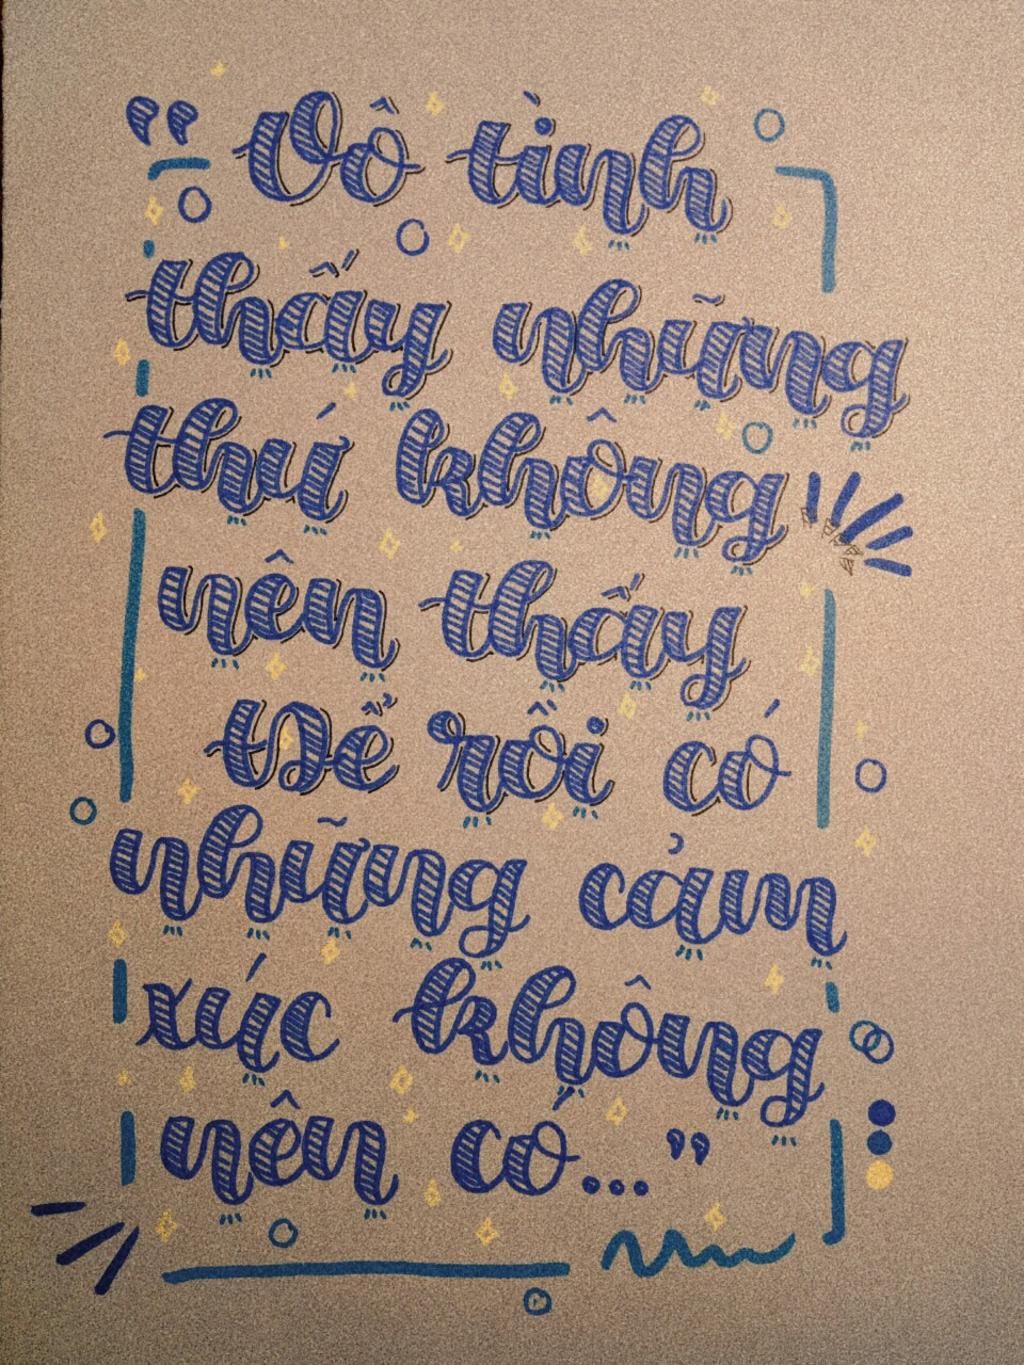 "Vô tình
thấy những
thứ không
nên thấy
Để rồi có
những cảm
xúc không
nên có..."